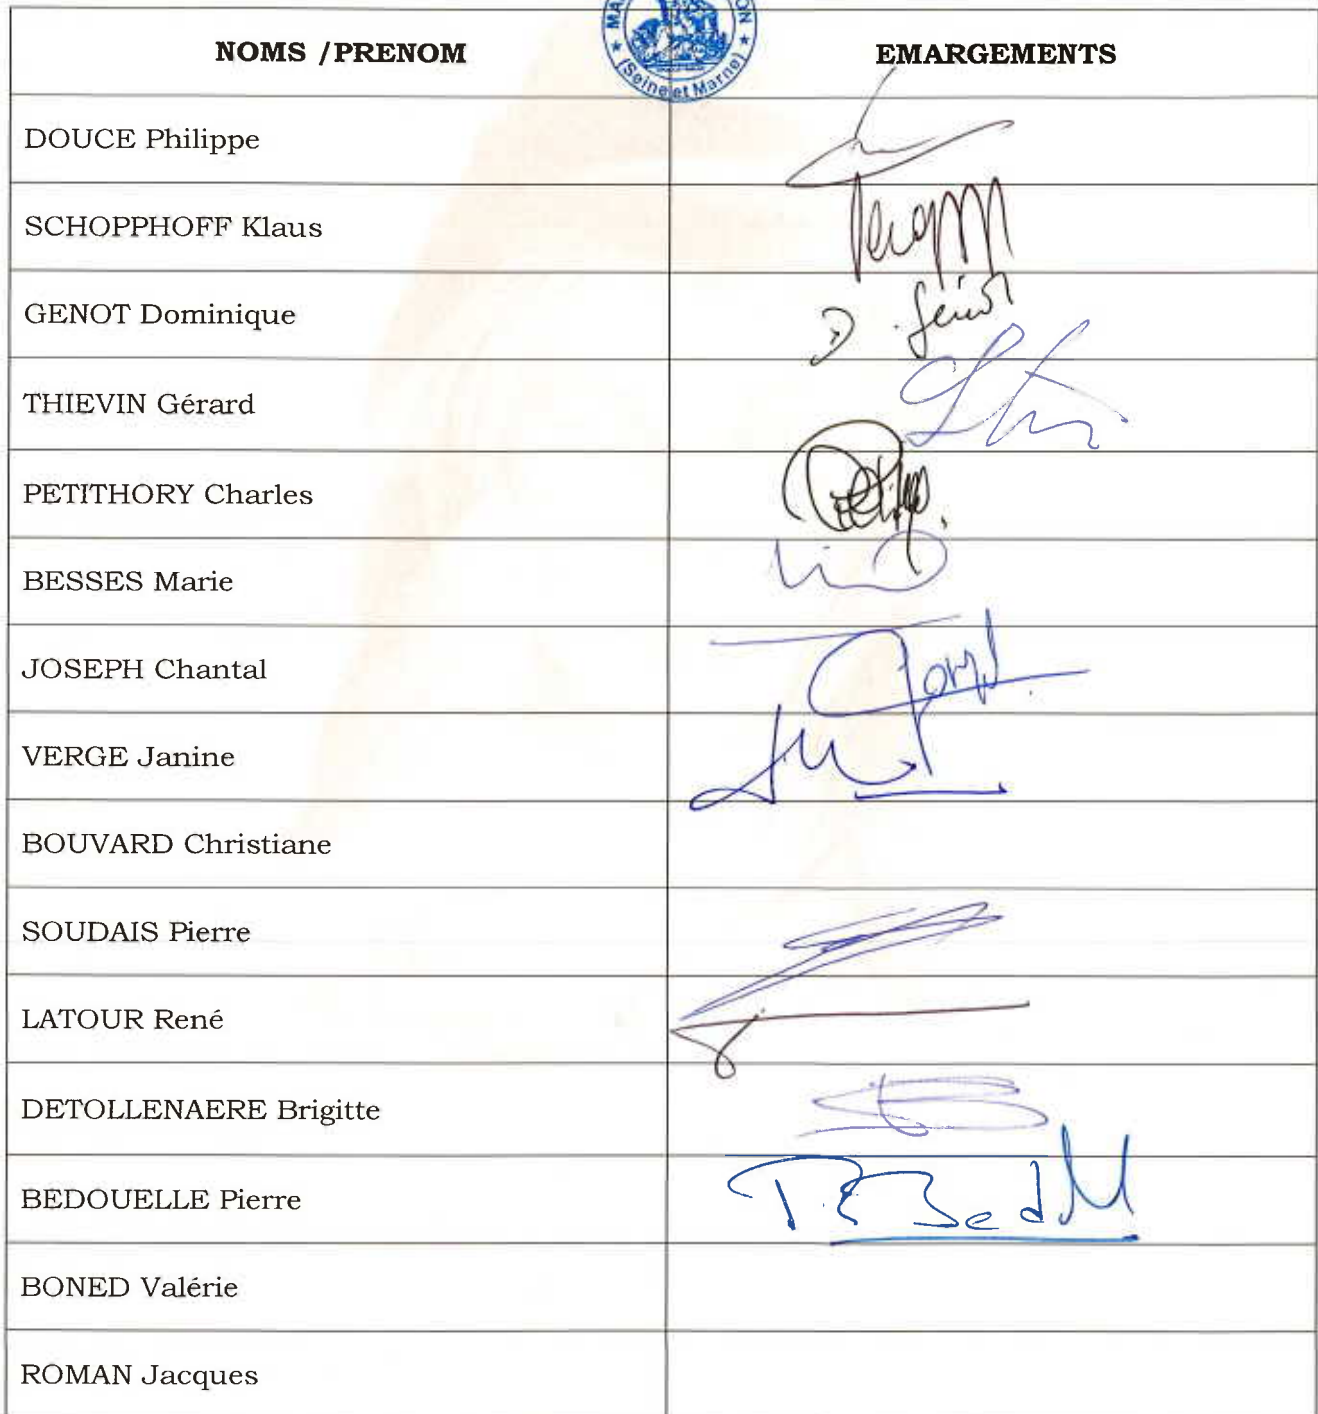 NOMS /PRENOM
(Seine et Marne)
EMARGEMENTS
DOUCE Philippe
SCHOPPHOFF Klaus
GENOT Dominique
THIEVIN Gérard
PETITHORY Charles
BESSES Marie
JOSEPH Chantal
VERGE Janine
BOUVARD Christiane
SOUDAIS Pierre
LATOUR René
DETOLLENAERE Brigitte
BEDOUELLE Pierre
BONED Valérie
ROMAN Jacques